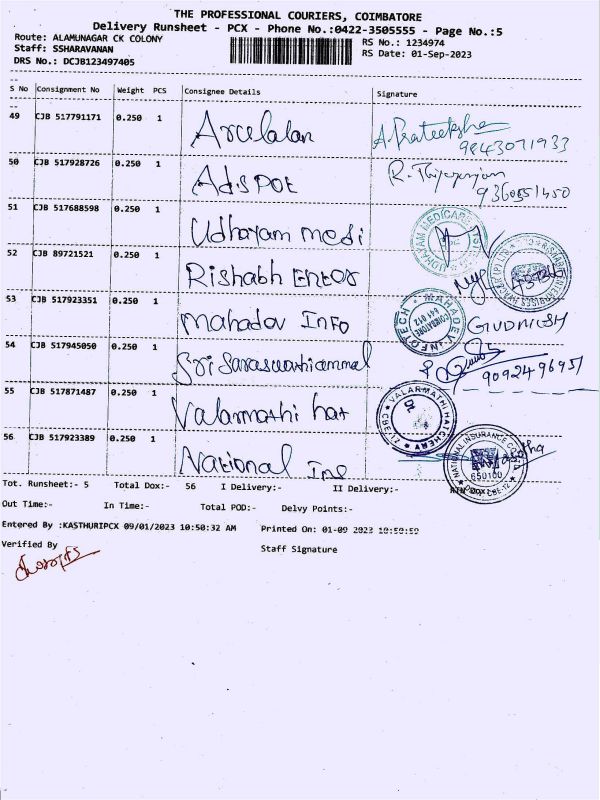 THE PROFESSIONAL COURIERS, COIMBATORE
Delivery Runsheet - PCX - Phone No.:0422-3505555 - Page No.:5
Route: ALAMUNAGAR CK COLONY
RS No.: 1234974
Staff: SSHARAVANAN
RS Date: 01-Sep-2023
DRS No.: DCJB123497405
S No Consignment No Weight PCS Consignee Details Signature
49 CJB 517791171 0.250 1 Arcelalan A. Prateeksha
9843071933
50 CJB 517928726 0.250 1 Adispot R.
9360551450
51 CJB 517688598 0.250 1 Udhayam medi UDHAYAM MEDICARE
52 CJB 89721521 0.250 1 Rishabh Enter
53 CJB 517923351 0.250 1 mahadev Info MAHADEV INFOTECH COIMBATORE 641 012 GUDNIESH
54 CJB 517945050 0.250 1 Sri Saraswathiammal
9092496951
55 CJB 517871487 0.250 1 Valarmathi hat VALARMATHI HATCHERY CBE
56 CJB 517923389 0.250 1 National Ins NATIONAL INSURANCE CO 650100 CBE-12
Tot. Runsheet:- 5 Total Dox:- 56 I Delivery:- II Delivery:-
Out Time:- In Time:- Total POD:- Delvy Points:-
Entered By :KASTHURIPCX 09/01/2023 10:50:32 AM Printed On: 01-09 2023 10:50:59
Verified By
Staff Signature